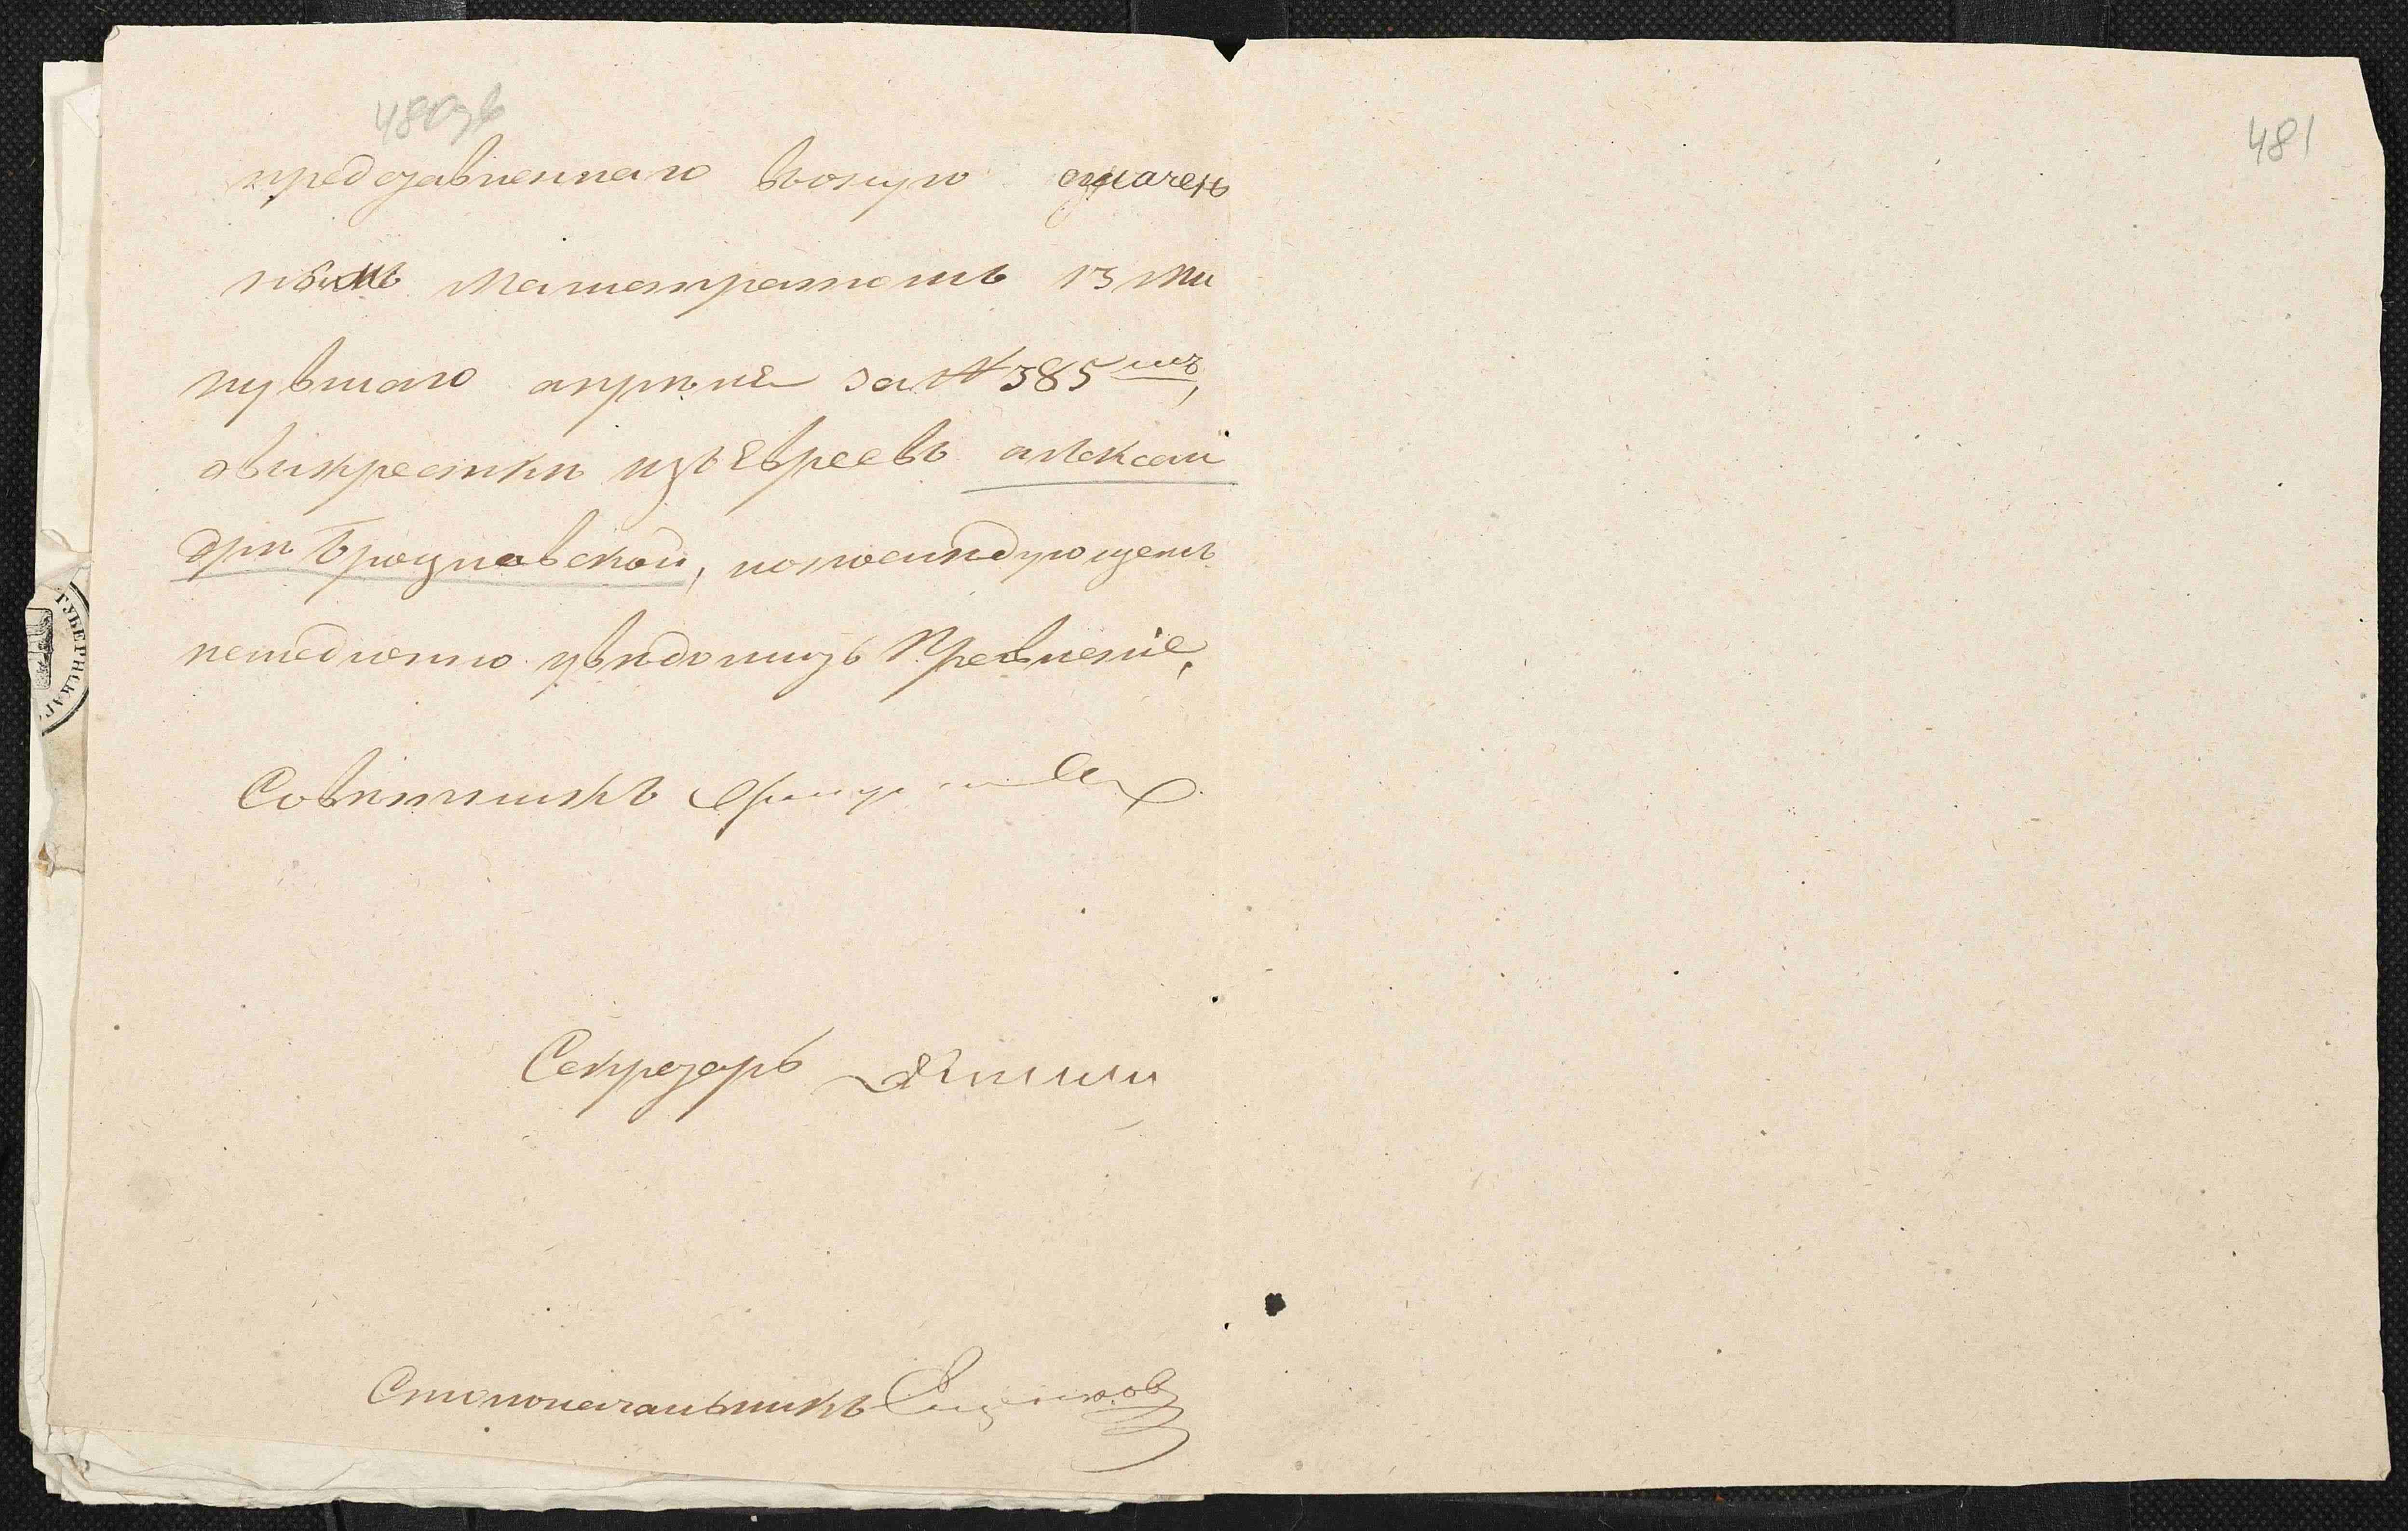 480об
представленнаго въоную означен
нымъ Магистратомъ 13 ми
нувшаго апрѣля за № 385мъ,
овыкресткѣ изъ Евреевъ алексан
дрѣ Броцновской, попослѣдующемъ
немедленно увѣдомить Правленіе,
Совѣтникъ
Секретарь
Столоначальникъ
481
ГУБЕРНСКАГ